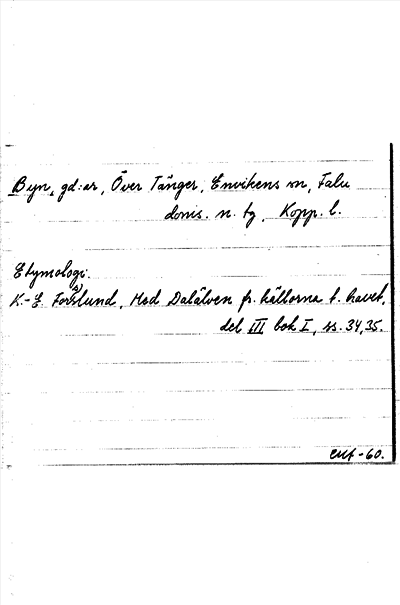 Byn, gd:ar, Över Tänger, Envikens sn, Falu
doms. n. tg, Kopp. l.
Etymologi.
K.-E. Forslund, Med Dalälven fr. källorna t. havet,
del III bok I, ss. 34, 35.
-60.